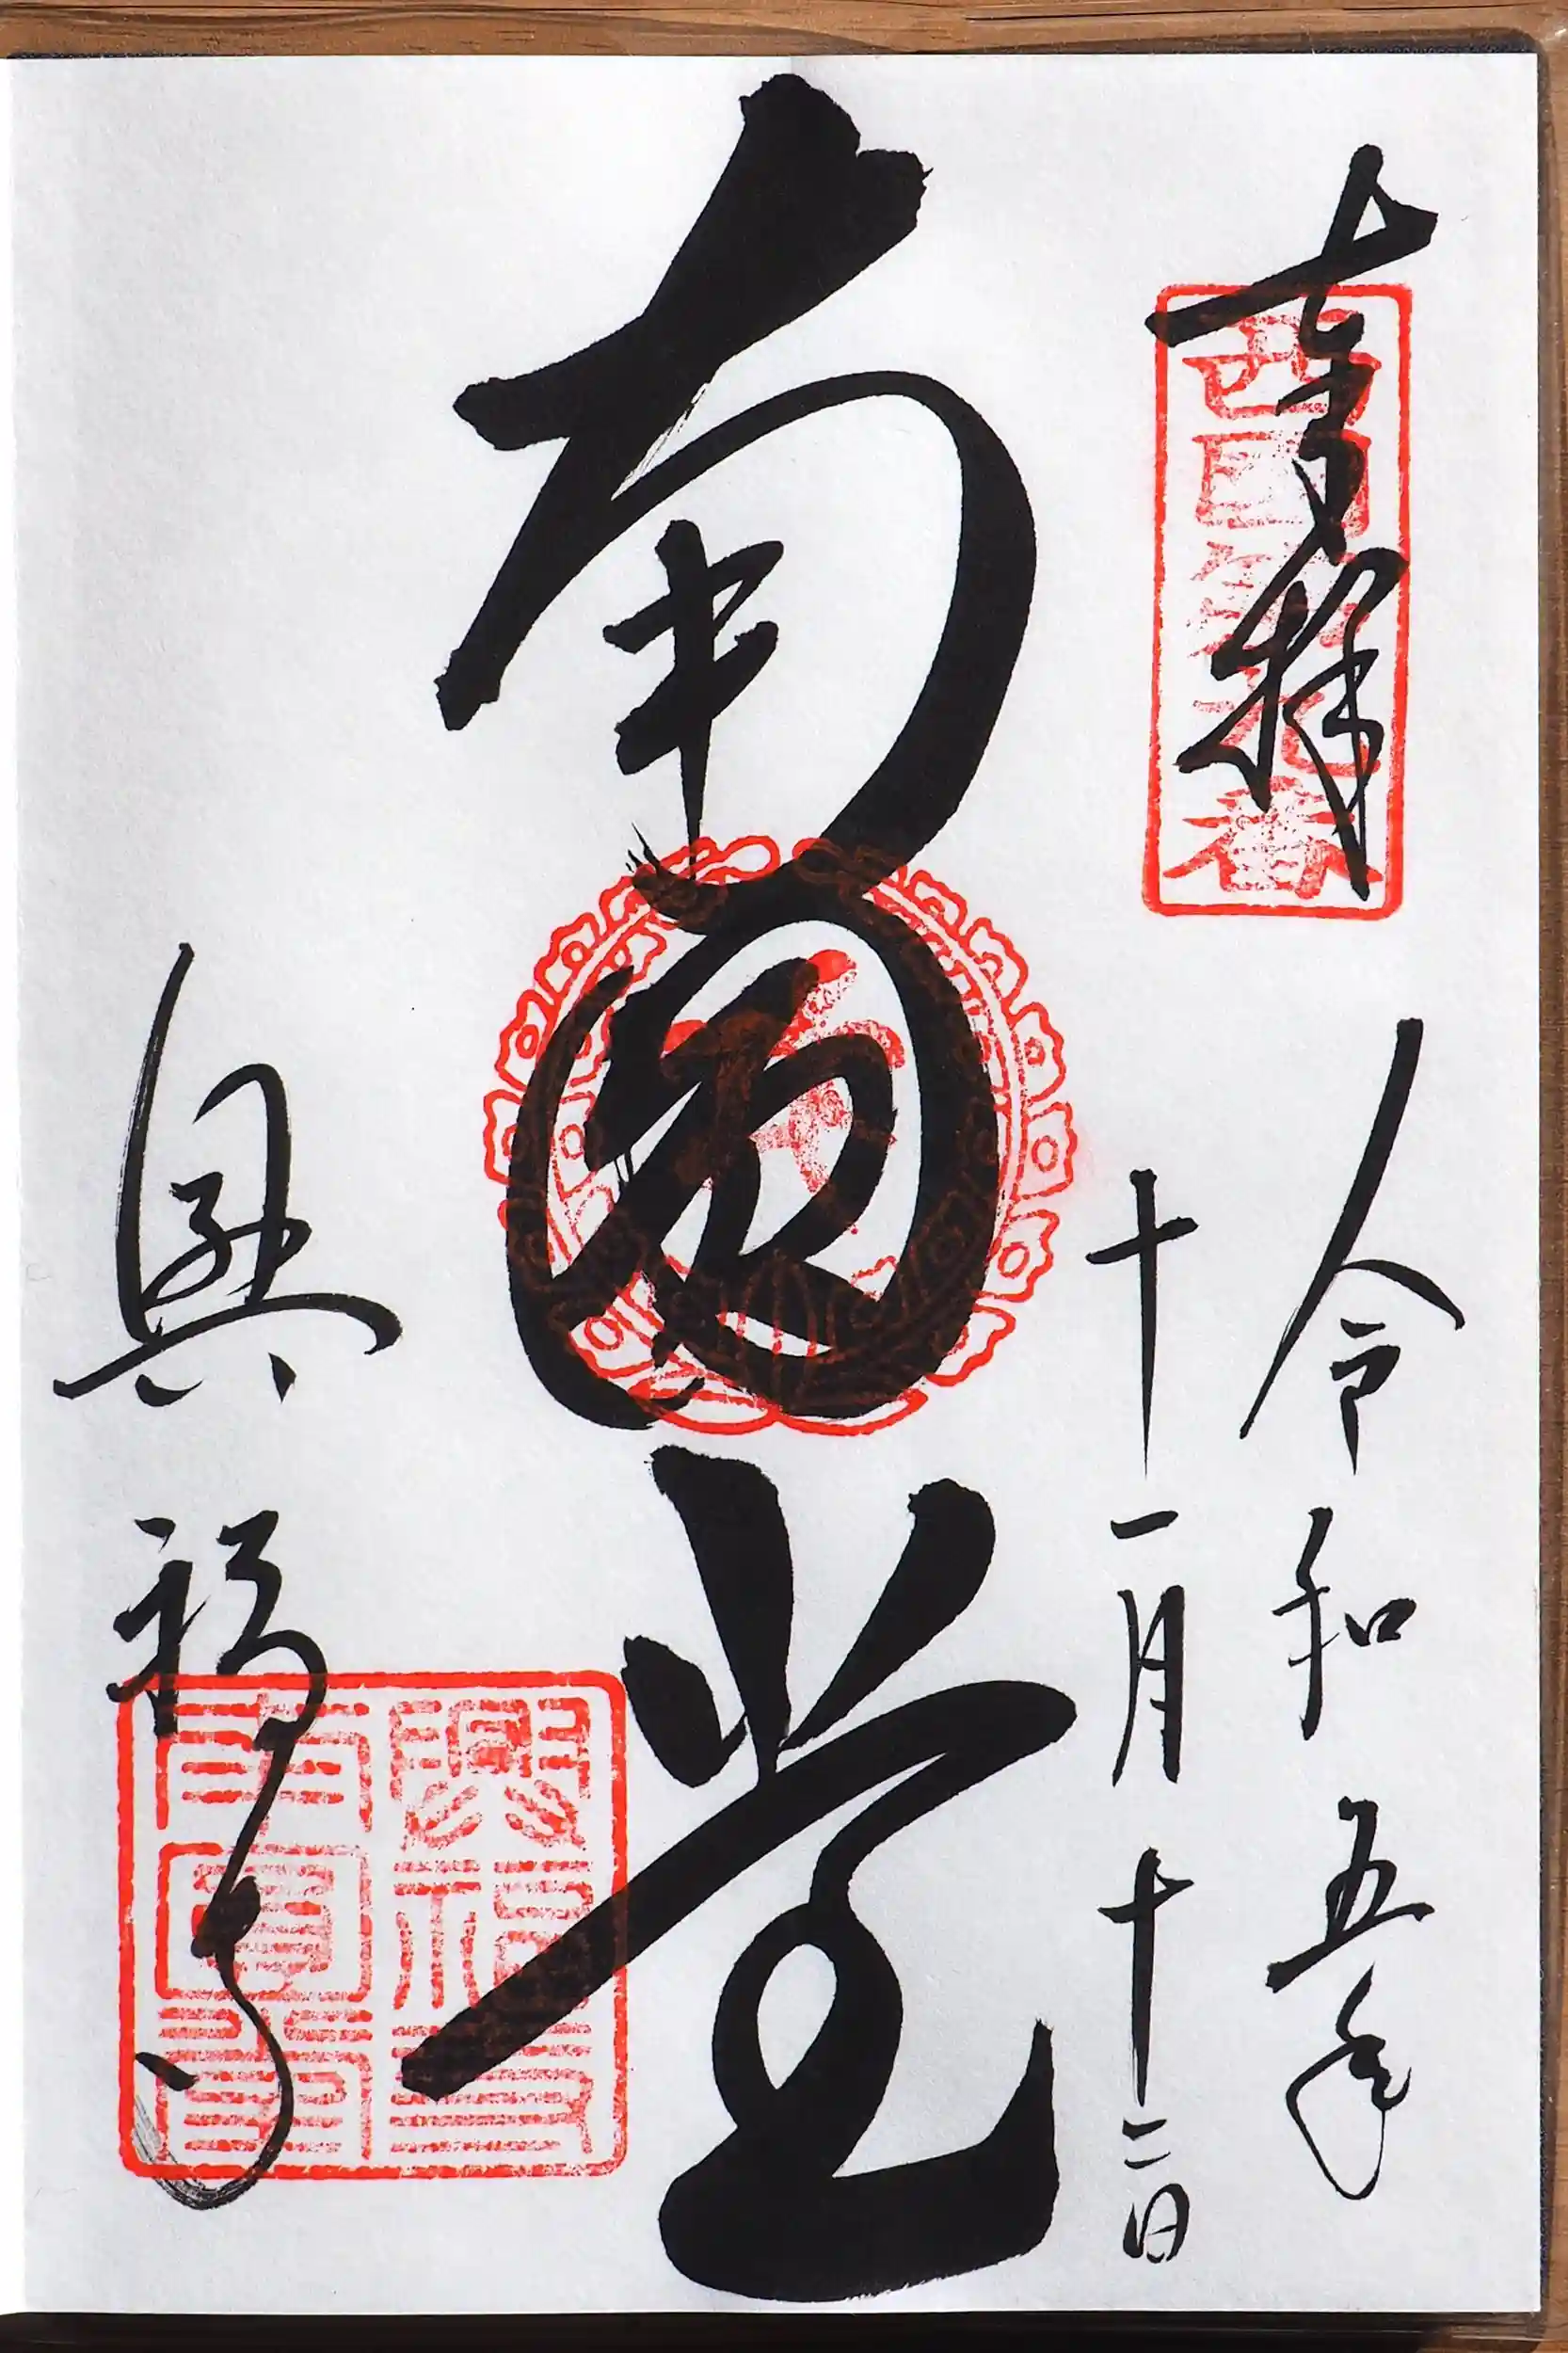 奉拝
西国第九番
令和五年
十一月十二日
南圓堂
興福寺
興福寺
南圓堂